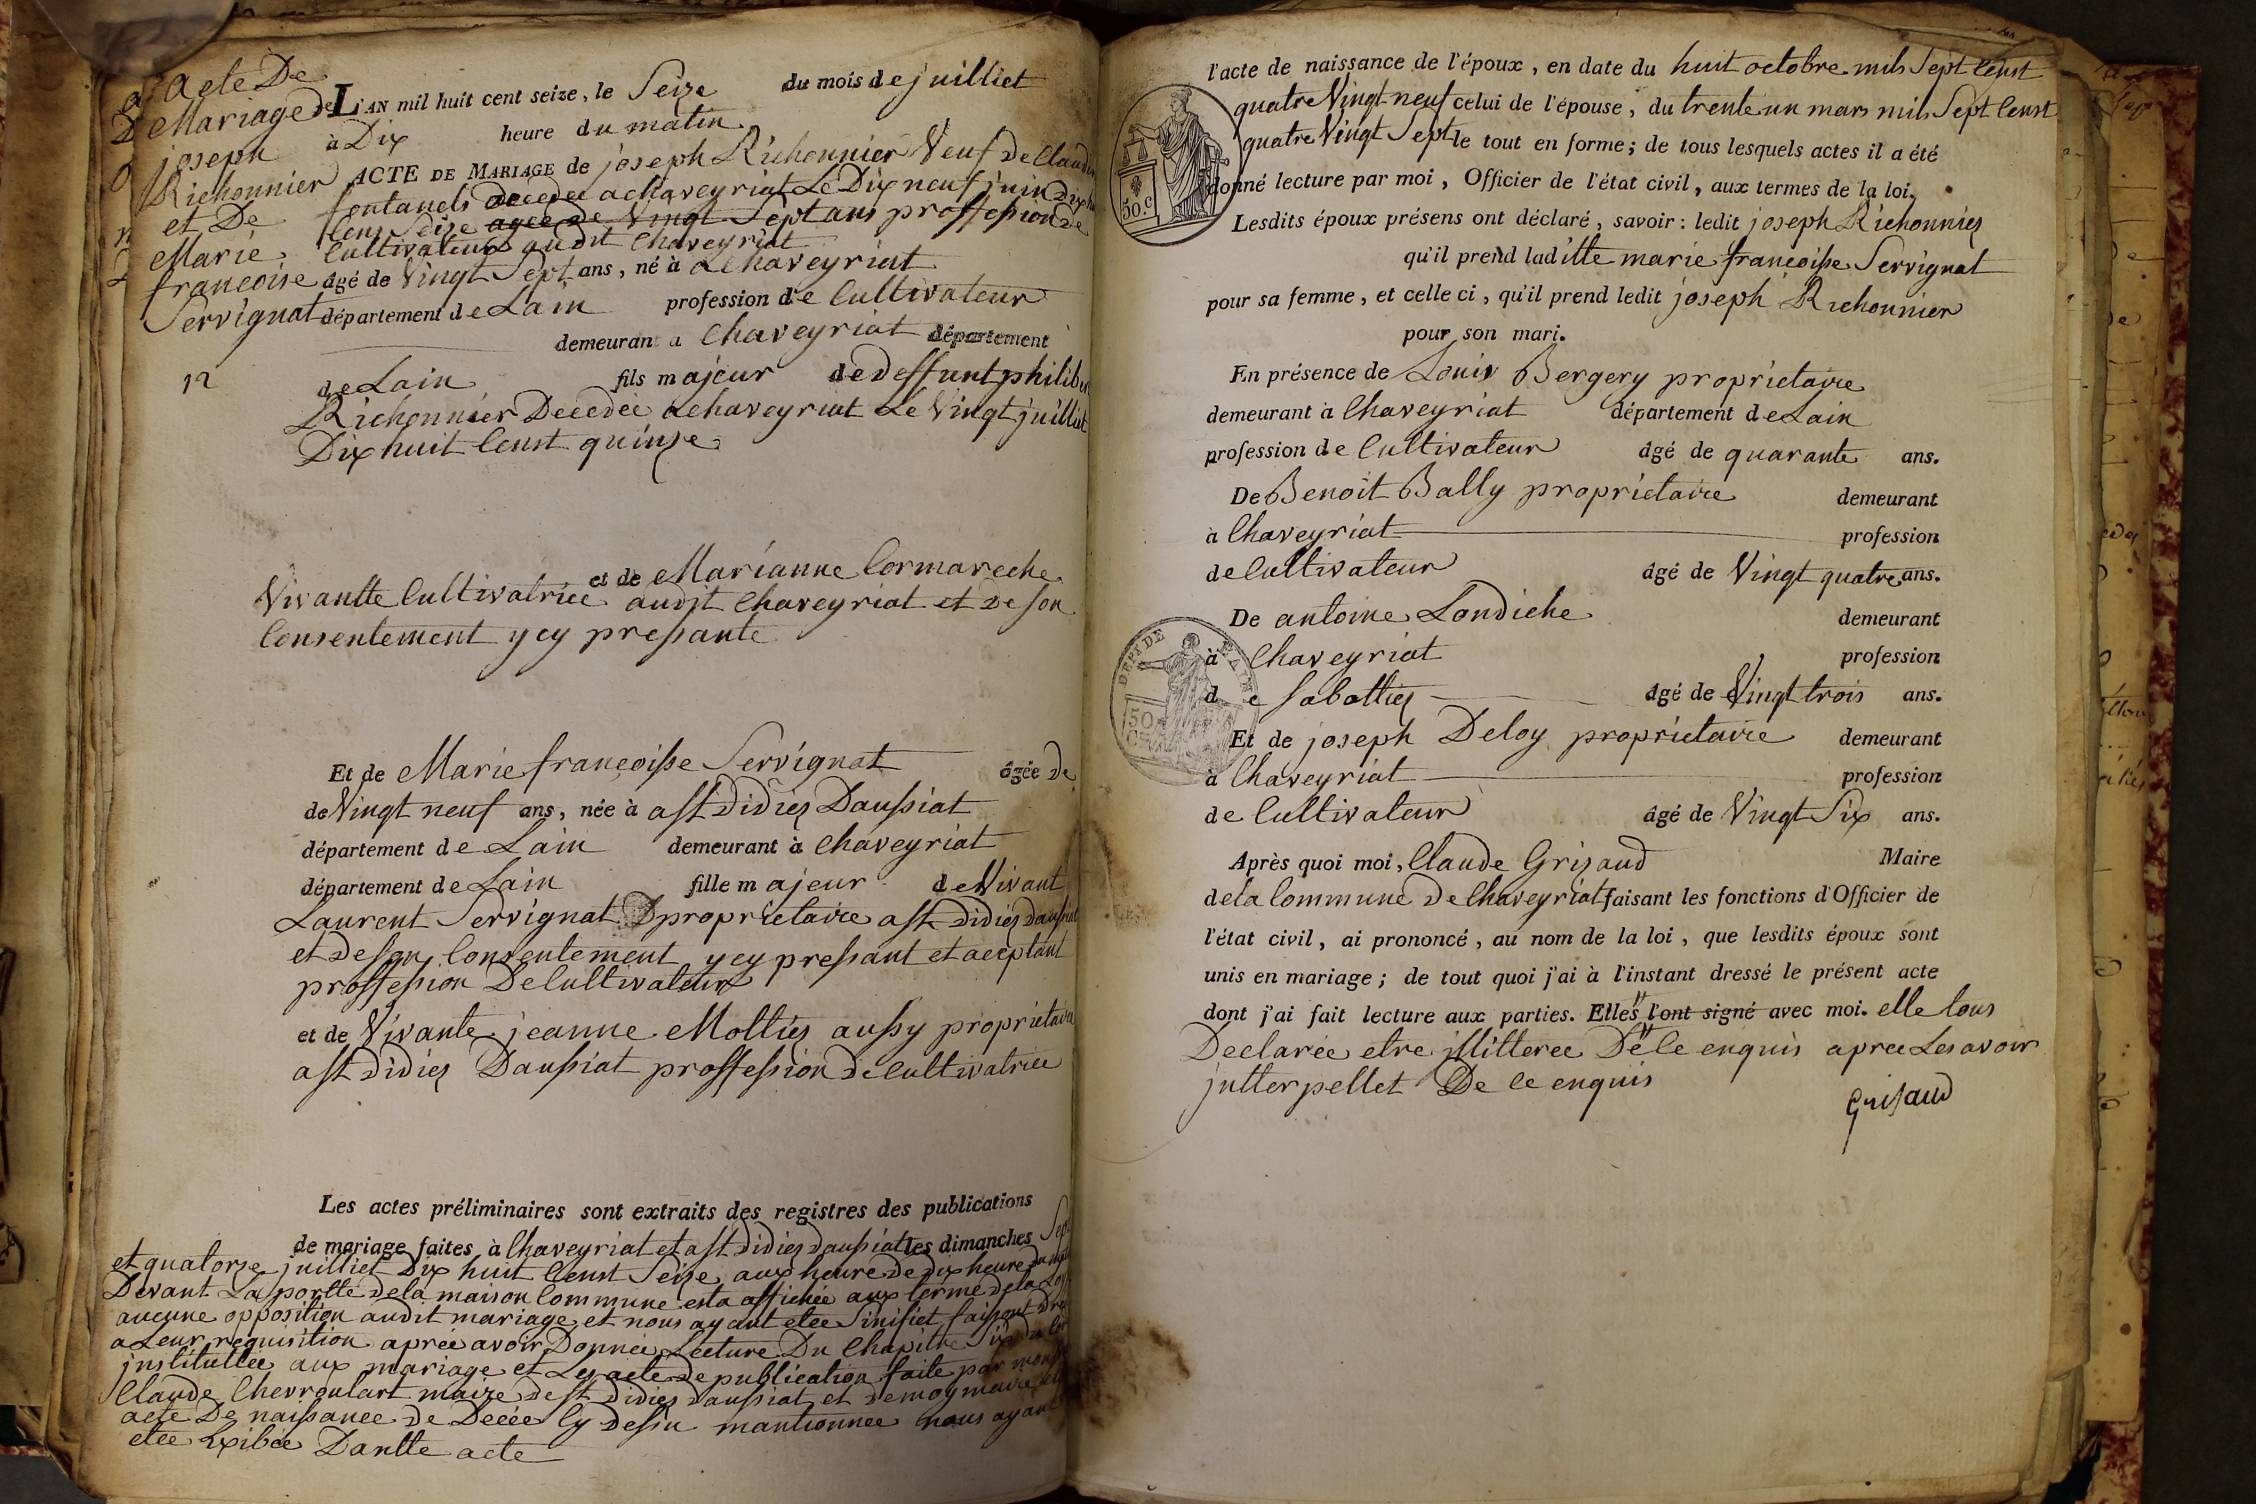 acte De
Mariage de
joseph
Richonnier
et De
Marie
francoise
Servignat
12
L'AN mil huit cent seize, le Seize du mois de juilliet
à Dix heure du matin
ACTE DE MARIAGE de joseph Richonnier Veuf De
fontanels décédée a chaveyriat Le Dix neuf juin
Cent Seize agée de Vingt Sept ans proffession de
Cultivateur audit Chaveyriat
âgé de Vingt Sept ans, né à a Chaveyriat
département de Lain profession de Cultivateur
demeurant a Chaveyriat département
de Lain fils majeur de Deffunt
Richonnier Decedée a chaveyriat Le Vingt juilliet
Dix huit Censt quinze
et de Marianne Cormareche
Vivantte Cultivatrice audit Chaveyriat et De son
Consentement y cy pressante
Et de Marie françoisse Servignat âgée De
de Vingt neuf ans, née à a St Didier Daussiat
département de Lain demeurant à Chaveyriat
département de Lain fille majeur de Vivant
Laurent Servignat proprietaire a St didier
et De son Consentement y cy pressant et aceptant
proffession De Cultivateur
et de Vivante jeanne Mottier aussy
a St didier Daussiat proffession De Cultivatrice
Les actes préliminaires sont extraits des registres des publications
de mariage faites à Chaveyriat et a St didier daussiat les dimanches
et quatorze juilliet Dix huit Censt Seize aux heure De dix heure
Devant La portte de la maison Commune esta affichée aux terme de la
aucune opposition audit mariage et nous ayant etee Sinifiet faisant
a Leur requisition aprée avoir Donnée Lecture Du Chapitre Six
jnstituttée aux mariage et Les acte de publication faite par
Claude Chevroulart maire de St didier daussiat et de moy maire
acte De naissance de Decée Cy dessu mantionnée nous ayant
etee Exibée Dantte acte
l'acte de naissance de l'époux, en date du huit octobre mils Sept Censt
quatre Vingt neuf celui de l'épouse, du trente un mars mils Sept Censt
quatre Vingt Sept le tout en forme; de tous lesquels actes il a été
donné lecture par moi, Officier de l'état civil, aux termes de la loi.
50.c
Lesdits époux présens ont déclaré, savoir: ledit joseph Richonnier
qu'il prend laditte marie françoisse Servignat
pour sa femme, et celle ci, qu'il prend ledit joseph Richonnier
pour son mari.
En présence de Louis Bergery proprietaire
demeurant à Chaveyriat département de Lain
profession de Cultivateur âgé de quarante ans.
De Benoit Bally proprietaire demeurant
à Chaveyriat profession
de Cultivateur âgé de Vingt quatre ans.
De antoine Londiche demeurant
DEPT DE L'AIN
à Chaveyriat profession
de Sabottier âgé de Vingt trois ans.
50
Et de joseph Deloy proprietaire demeurant
à Chaveyriat profession
de Cultivateur âgé de Vingt Six ans.
Après quoi moi, Claude Grizaud Maire
de la Commune De Chaveyriat faisant les fonctions d'Officier de
l'état civil, ai prononcé, au nom de la loi, que lesdits époux sont
unis en mariage; de tout quoi j'ai à l'instant dressé le présent acte
dont j'ai fait lecture aux parties. Elles l'ont signé avec moi. elle tous
Declarée etre jllitteree De Ce enquis apree Les avoir
jntterpellet De Ce enquis
Grisaud